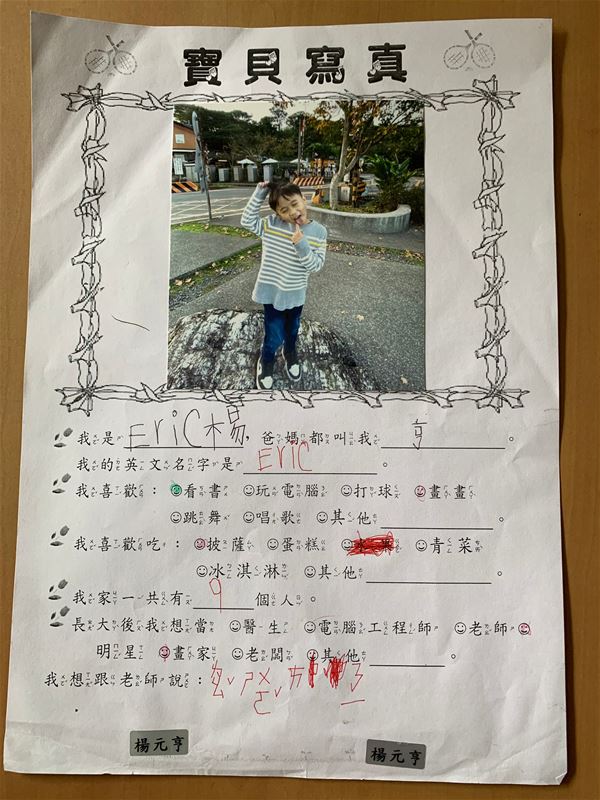 寶貝寫真
我是Eric楊，爸媽都叫我亨。
我的英文名字是Eric。
我喜歡：☺看書 ☺玩電腦 ☺打球 ☺畫畫
☺跳舞 ☺唱歌 ☺其他
我喜歡吃：☺披薩 ☺蛋糕 ☺水果 ☺青菜
☺冰淇淋 ☺其他
我家一共有9個人。
長大後我想當 ☺醫生 ☺電腦工程師 ☺老師 ☺
明星 ☺畫家 ☺老闆 ☺其他。
我想跟老師說：
楊元亨 楊元亨